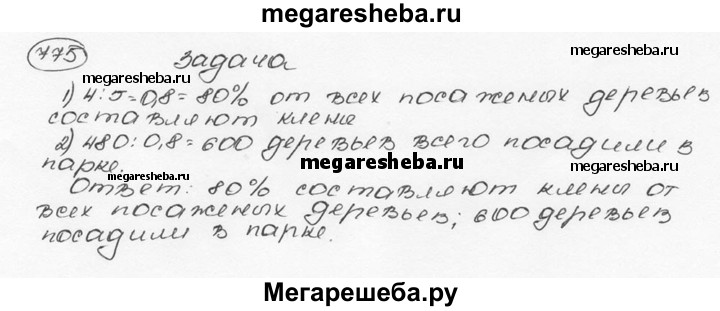 megaresheba.ru
775 задача
megaresheba.ru
megaresheba.ru
1) 4:5=0,8=80% от всех посаженых деревьев
составляют клены
2) 480:0,8=600 деревьев всего посадили в
парке.
megaresheba.ru
megaresheba.ru
megaresheba.ru
Ответ: 80% составляют клены от
всех посаженых деревьев; 600 деревьев
посадили в парке.
megaresheba.ru
megaresheba.ru
Мегарешеба.ру